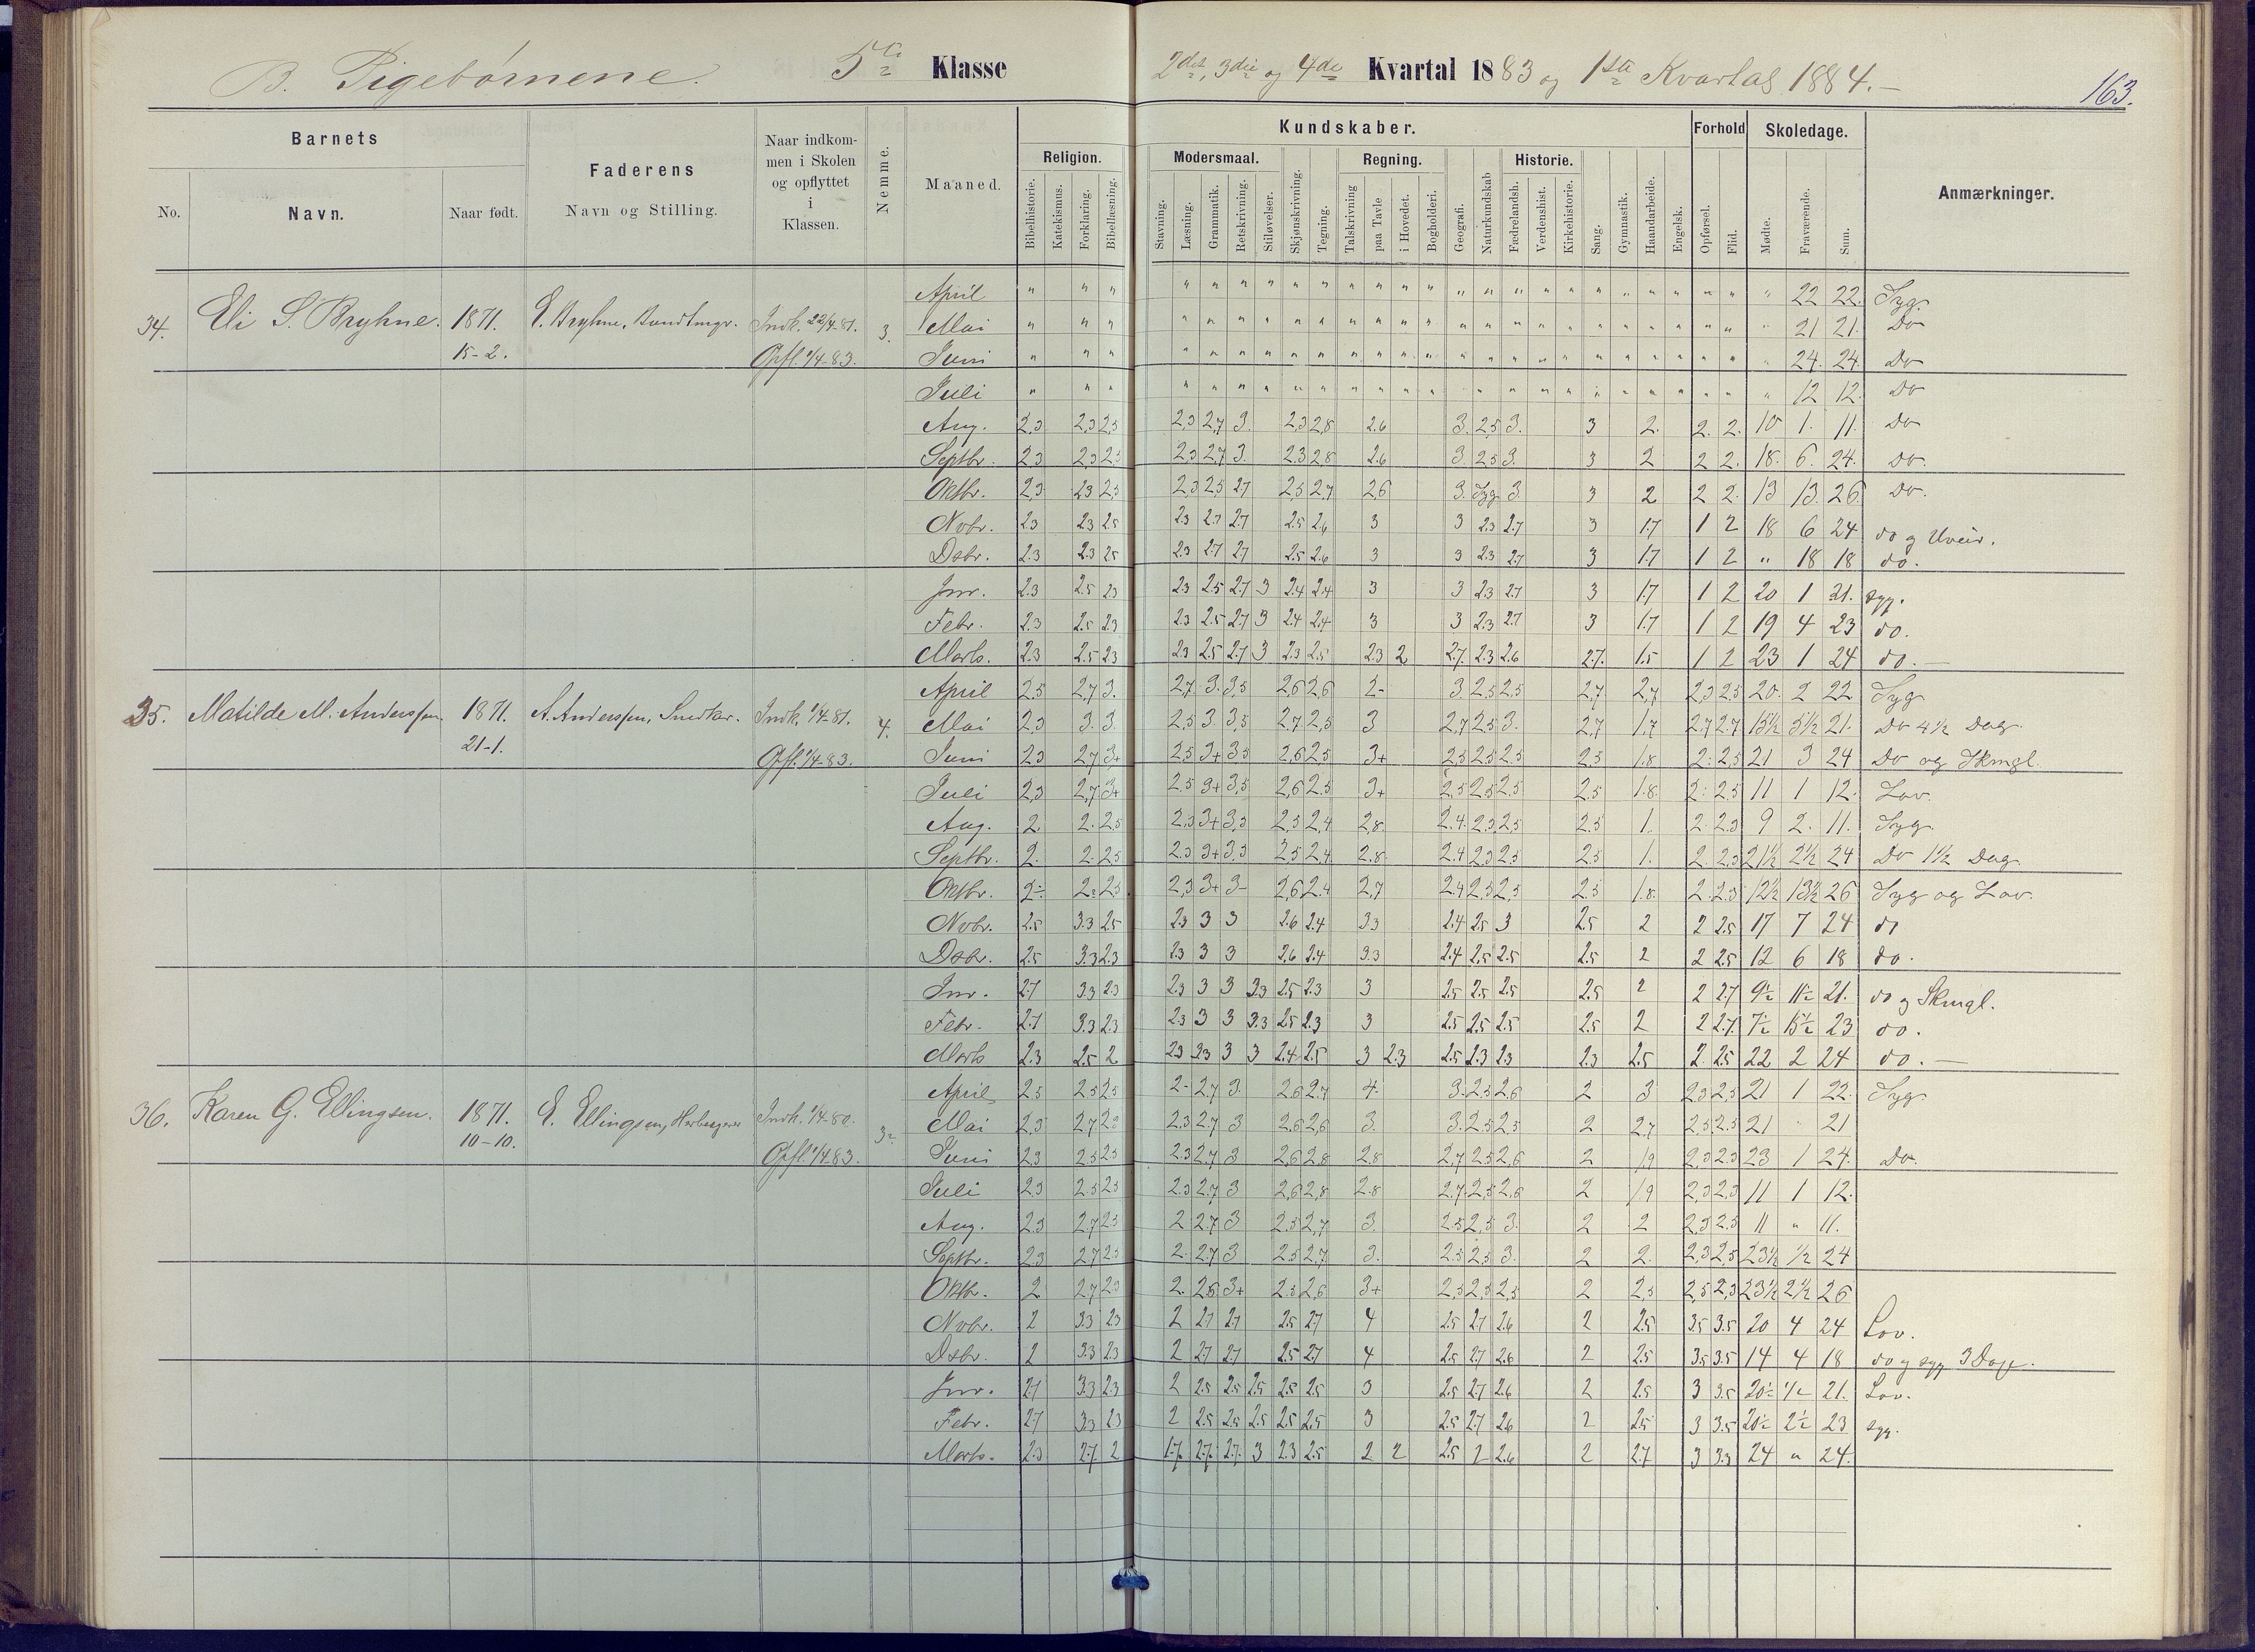 B. Pigebørnene. 5te Klasse 2det, 3die og 4de Kvartal 1883 og 1ste Kvartal 1884.—
163.
Barnets
Faderens
Naar indkommen i Skolen og opflyttet i Klassen.
Nemme.
Maaned.
Religion.
Kundskaber.
Forhold
Skoledage.
Anmærkninger.
Modersmaal.
Regning.
Historie.
No. Navn. Naar født. Navn og Stilling.
Bibelhistorie. Katekismus. Forklaring. Bibellæsning. Stavning. Læsning. Grammatik. Retskrivning. Stiløvelser. Skjønskrivning. Tegning. Talskrivning paa Tavle i Hovedet. Bogholderi. Geografi. Naturkundskab Fædrelandsh. Verdenshist. Kirkehistorie. Sang. Gymnastik. Haandarbeide. Engelsk. Opførsel. Flid. Mødte. Fraværende. Sum.
34. Eli S. Bryhne. 1871. 15-2. E. Bryhne, Indk. 22/4-81. Opfl. 1/4-83. 3.
April " " " " " " " " " " " " " " " " " " " " " " " " " " 22 22. Syg.
Mai " " " " " " " " " " " " " " " " " " " " " " " " " " 21 21. Do
Juni " " " " " " " " " " " " " " " " " " " " " " " " " " 24. 24. Do
Juli " " " " " " " " " " " " " " " " " " " " " " " " " " 12 12. Do
Aug. 2,3 2,3 2,5 2,3 2,7 3. 2,3 2,8 2.6 3. 2,5 3. 3 2. 2. 2. 10 1. 11. Do
Septbr. 2,3 2,3 2,5 2,3 2,7 3. 2.3 2,8 2.6 3. 2.5 3. 3 2 2 2. 18. 6. 24. Do.
Oktbr. 2,3 2,3 2,5 2,3 2,5 2,7 2,5 2,7 2,6 3. Syg 3. 3 2 2 2. 13 13. 26. Do.
Nobr. 2.3 2.3 2.5 2.3 2.7 2.7 2.5 2.6 3 3 2.3 2.7 3 1.7 1 2 18 6 24 do og Uveir.
Dsbr. 2.3 2.3 2.5 2.3 2.7 2.7 2.5 2.6 3 3 2.3 2.7 3 1.7 1 2 " 18 18 do.
Jnr. 2.3 2.5 2.3 2.3 2.5 2.7 3 2.4 2.4 3 3 2.3 2.7 3 1.7 1 2 20 1 21. syg.
Febr. 2.3 2.5 2.3 2.3 2.5 2.7 3 2.4 2.4 3 3 2.3 2.7 3 1.7 1 2 19 4 23 do.
Marts. 2.3 2.5 2.3 2.3 2.5 2.7 3 2.3 2.5 2.3 2 2.7. 2.3 2.6 2.7. 1.5 1 2 23 1 24 do.—
35. Matilde M. Anderssen. 1871. 21-1. A. Anderssen, Snedker. Indk. 1/4-81. Opfl. 1/4-83. 4.
April 2.5 2,7 3. 2,7 3. 3,5 2,6 2,6 2- 3. 2,5 2,5 2,7 2,7 2,3 2,5 20. 2 22 Syg
Mai 2,3 3. 3. 2,5 3. 3,5 2.7 2,5 3 2,7 2.5 3. 2,7 1,7 2.7 2.7 15½ 5½ 21. Do 4½ Dag.
Juni 2.3 2.7 3+ 2.5 3+ 3.5 2,6 2.5 3+ 2,5 2,5 2.5 2.5 1.8 2. 2,5 21 3 24 Do og Skmgl.
Juli 2,3 2,7 3+ 2.5 3+ 3,5 2,6 2.5 3+ 2.5 2.5 2.5 2.5 1.8. 2. 2.5 11 1 12. Lov.
Aug. 2. 2. 2.5 2.3 3+ 3,3 2,5 2,4 2,8 2.4. 2.3 2.5 2.5 1. 2. 2.3 9 2. 11. Syg
Septbr. 2. 2. 2.5 2.3 3+ 3.3 2.5 2.4 2.8 2.4 2.3 2.5 2.5 1. 2. 2.3 21½ 2½ 24 Do 1½ Dag
Oktbr. 2- 2- 2.5 2,3 3+ 3- 2,6 2.4 2.7 2.4 2.3 2.5 2.5 1.8. 2. 2.3 12½ 13½ 26 Syg og Lov.
Nobr. 2.5 3.3 2.5 2.3 3 3 2.6 2.4 3.3 2.4 2.5 3 2.5 2 2 2.5 17 7 24 do
Dsbr. 2.5 3.3 2.3 2.3 3 3 2.6 2.4 3.3 2.4 2.5 2.5 2.5 2 2 2.5 12 6 18 do.
Jnr. 2.7 3.3 2.3 2.3 3 3 3.3 2.5 2.3 3 2.5 2.5 2.5 2.5 2 2 2.7 9½ 11½ 21. do og Skmgl.
Febr. 2.7 3.3 2.3 2.3 3 3 3.3 2.5 2.3 3 2.5 2.5 2.5 2.5 2 2 2.7. 7½ 15½ 23 do.
Marts 2.3 2.5 2 2.3 3.3 3 3 2.4 2.5 3 2.3 2.5 2.3 2.3 2.3 2.5 2. 2.5 22 2 24 do.—
36. Karen G. Ellingsen. 1871. 10-10. E. Ellingsen, Indk. 1/4-80. Opfl. 1/4 83. 3-
April 2.5 2.5 2.5 2- 2.7 3. 2.6 2.7 4. 3. 2.5 2.6 2 3 2.3 2,5 21 1 22. Syg.
Mai 2,3 2.7 2.3 2.3 2.7 3 2.6 2,6 3. 3. 2.5 2.5 2 2.7 2,5 2.5 21 " 21
Juni 2.3 2.5 2.5 2.3 2.7 3 2,6 2.8 2.8 2,7 2.5 2.6 2 1.9 2,3 2.3 23 1 24. Do.
Juli 2.3 2.5 2.5 2.3 2.7 3 2,6 2,8 2.8 2.7 2,5 2,6 2 1.9 2,3 2,3 11 1 12.
Aug. 2.3 2.7 2.5 2 2.7 3 2.5 2,7 3. 2.5 2,5 3. 2 2 2,3 2.3 11 " 11.
Septbr. 2.3 2.7 2.5 2. 2.7 3 2.5 2,7 3. 2.5 2.5 3. 2 2. 2,3 2,5 23½ ½ 24
Oktbr. 2 2.7 2.3 2. 2.6 3+ 2.5 2,6 3+ 2,5 2,5 2,5 2 2,5 2,5 2,3 23½ 2½ 26
Nobr. 2 3.3 2.3 2 2.7 2.7 2.5 2.7 4 2.5 2.7 2.6 2 2.5 3.5 3.5 20 4 24 Lov.
Dsbr. 2 3.3 2.3 2 2.7 2.7 2.5 2.7 4 2.5 2.7 2.6 2 2.5 3.5 3.5 14 4 18 do og syg 3 Dage.
Jnr. 2.7 3.3 2.3 2 2.5 2.5 2.5 2.5 2.5 3 2.5 2.7 2.6 2 2.5 3 3.5 20½ ½ 21. Lov.
Febr. 2.7 3.3 2.3 2 2.5 2.5 2.5 2.5 2.5 3 2.5 2.7 2.6 2 2.5 3 3.5 20½ 2½ 23 syg.
Marts. 2.3 2.7 2 1.7. 2.7. 2.7. 3 2.3 2.5 2 2 2.5 2 2.6 2 2.7 3 3.3 24 " 24.